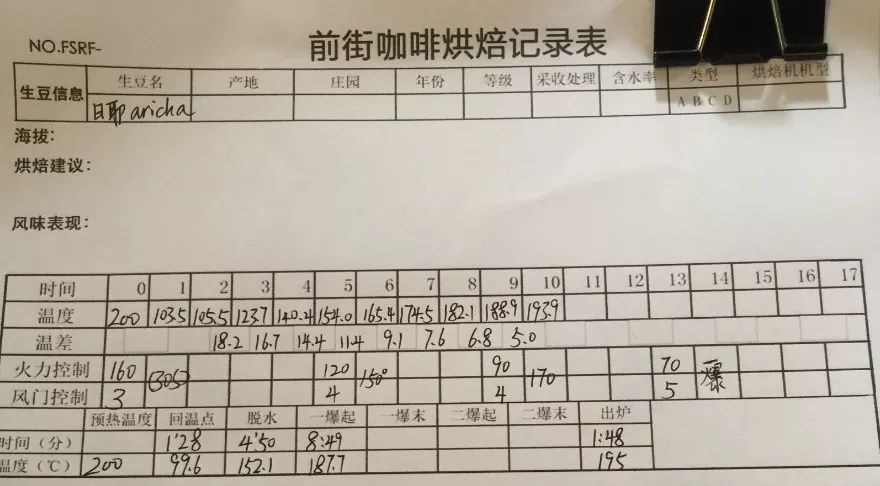 NO.FSRF-
前街咖啡烘焙记录表
生豆信息 生豆名 产地 庄园 年份 等级 采收处理 含水率 类型 烘焙机机型
日耶aricha A B C D
海拔:
烘焙建议:
风味表现:
时间 0 1 2 3 4 5 6 7 8 9 10 11 12 13 14 15 16 17
温度 200 103.5 105.5 123.7 140.4 154.0 165.4 174.5 182.1 188.9 193.9
温差 18.2 16.7 14.4 11.4 9.1 7.6 6.8 5.0
火力控制 160 (30S) 120 150° 90 170 70 一爆
风门控制 3 4 4 5
预热温度 回温点 脱水 一爆起 一爆末 二爆起 二爆末 出炉
时间（分） 1'28 4'50 8:49 1:48
温度（℃） 200 99.6 152.1 187.7 195